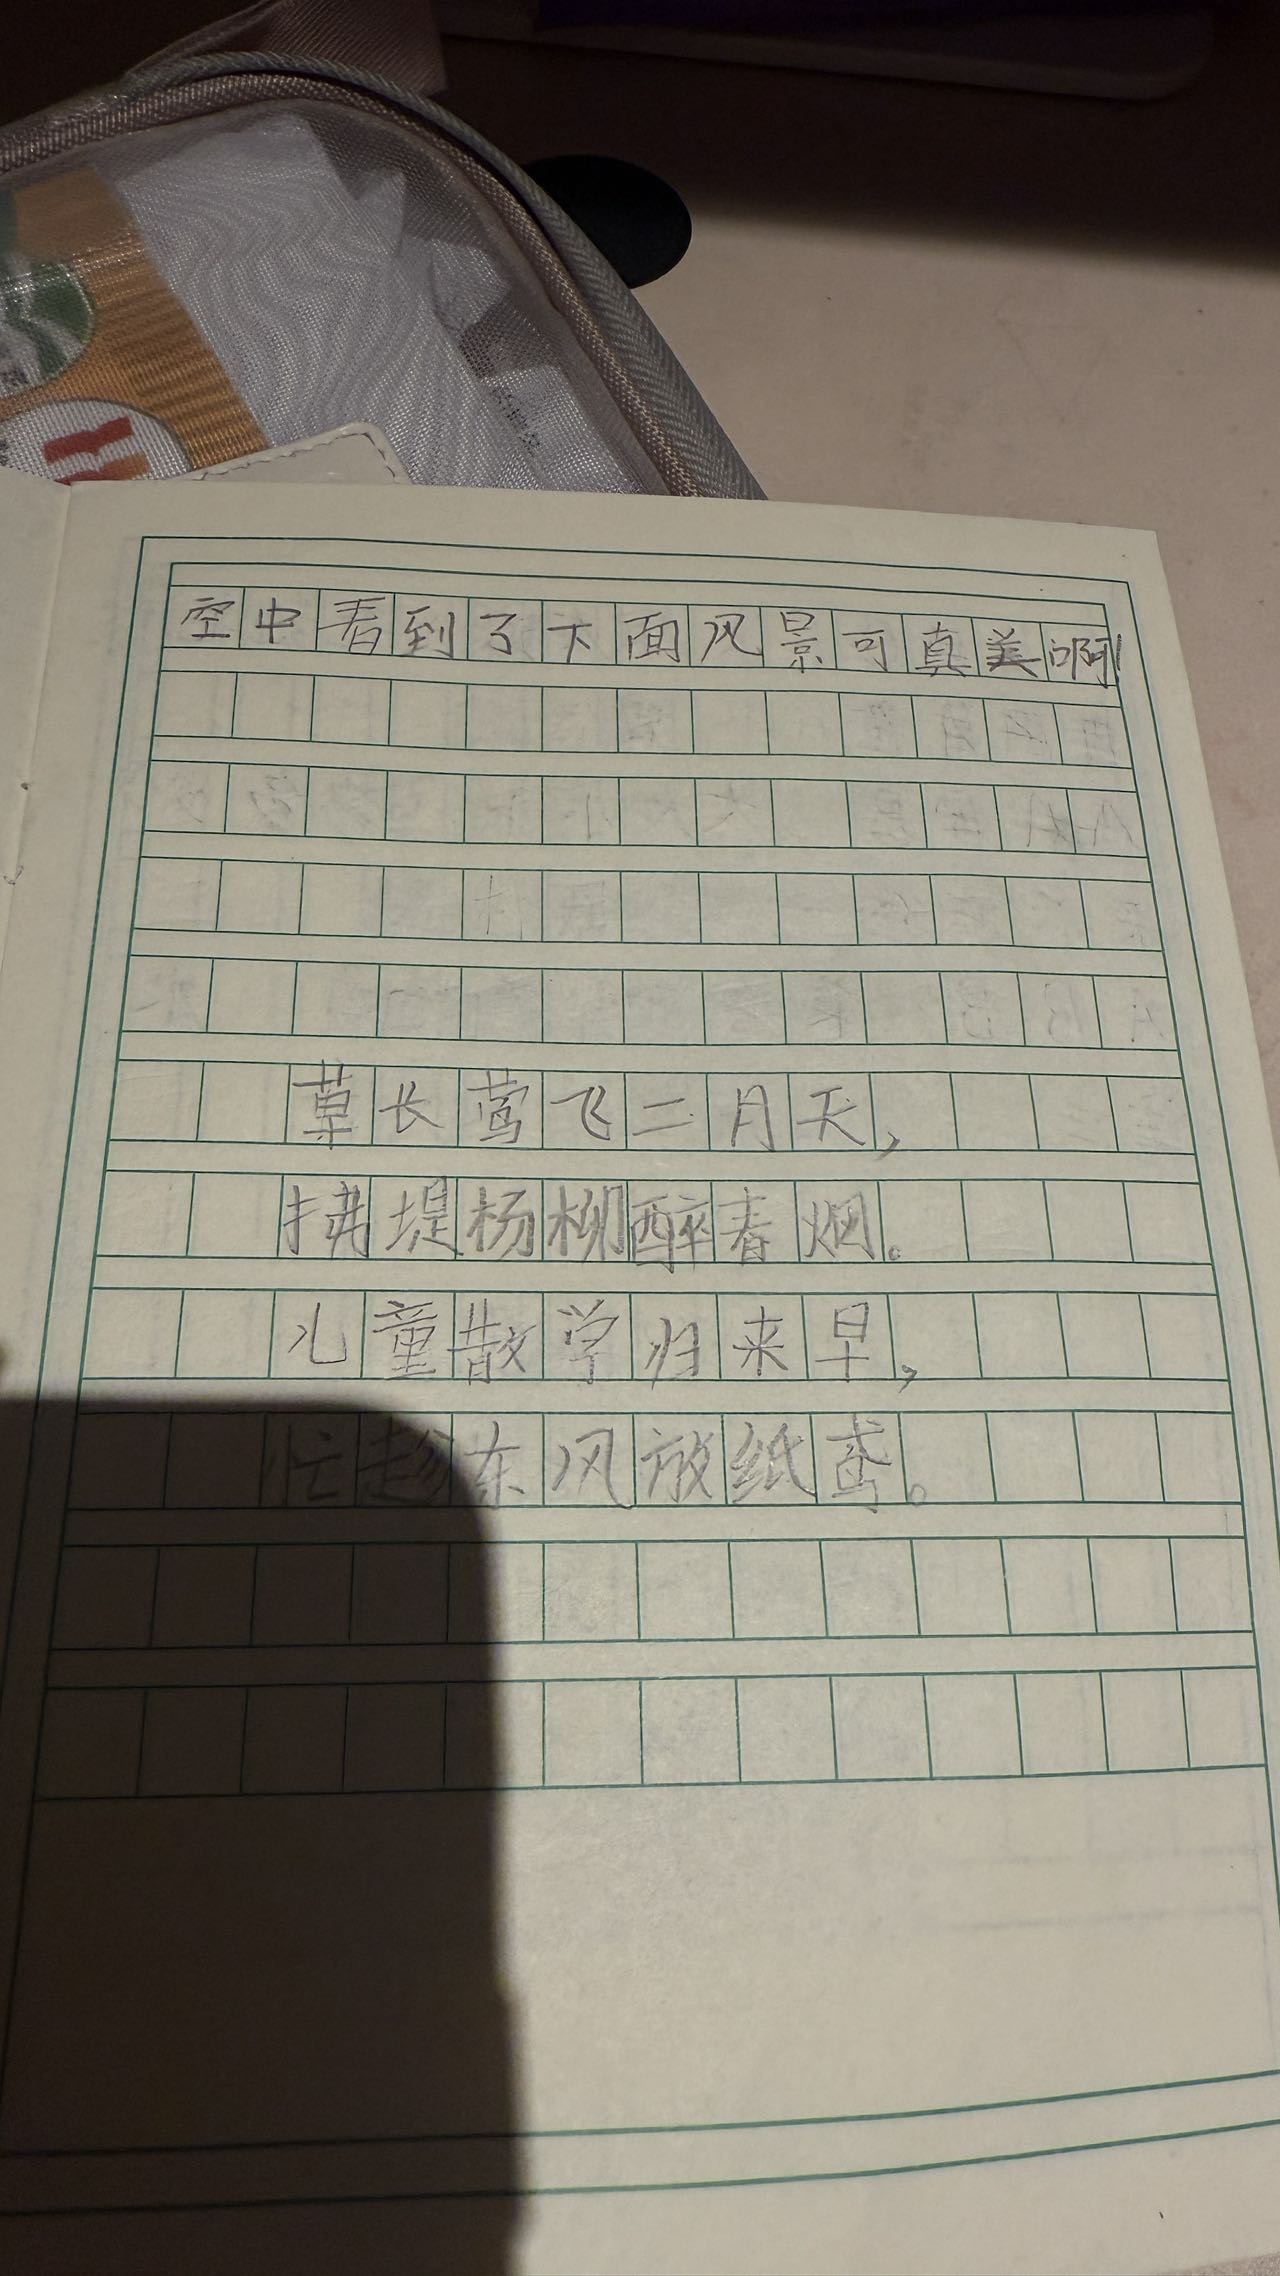 空中看到了下面风景可真美啊!
草长莺飞二月天，
拂堤杨柳醉春烟。
儿童散学归来早，
忙趁东风放纸鸢。